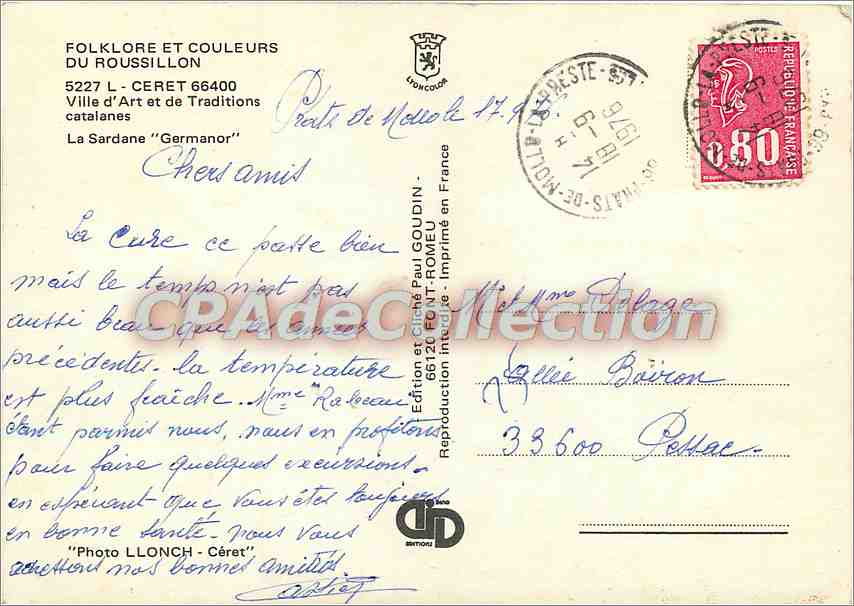 FOLKLORE ET COULEURS
DU ROUSSILLON
5227 L - CERET 66400
Ville d'Art et de Traditions
catalanes
La Sardane "Germanor"
LYONCOLOR
Prats de Mollo le 17.9.76
Chers amis
La cure ce passe bien
mais le temps n'est pas
aussi beau que les années
précédentes - la température
est plus fraîche. Mme Rabeau
étant parmis nous, nous en profitons
pour faire quelques excursions -
en espérant que vous êtes toujours
en bonne santé - nous vous
adressons nos bonnes amitiés
"Photo LLONCH - Céret"
Edition et Cliché Paul GOUDIN -
66120 FONT-ROMEU
Reproduction interdite - Imprimé en France
EDITIONS
66 PRATS-DE-MOLLO-LA-PRESTE
14 H
18 - 9
1976
POSTES
REPUBLIQUE FRANÇAISE
0,80
M. et Mme Delage
allée Boiron
33600 Pessac
CPAdeCollection